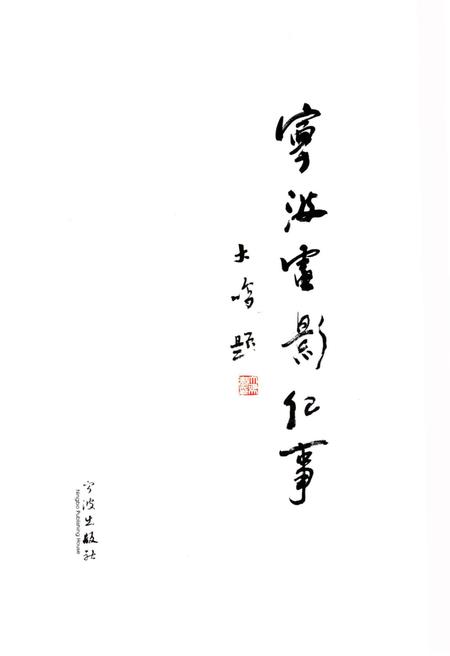 寧波電影纪事
大鸣题
宁波出版社
Ningbo Publishing House